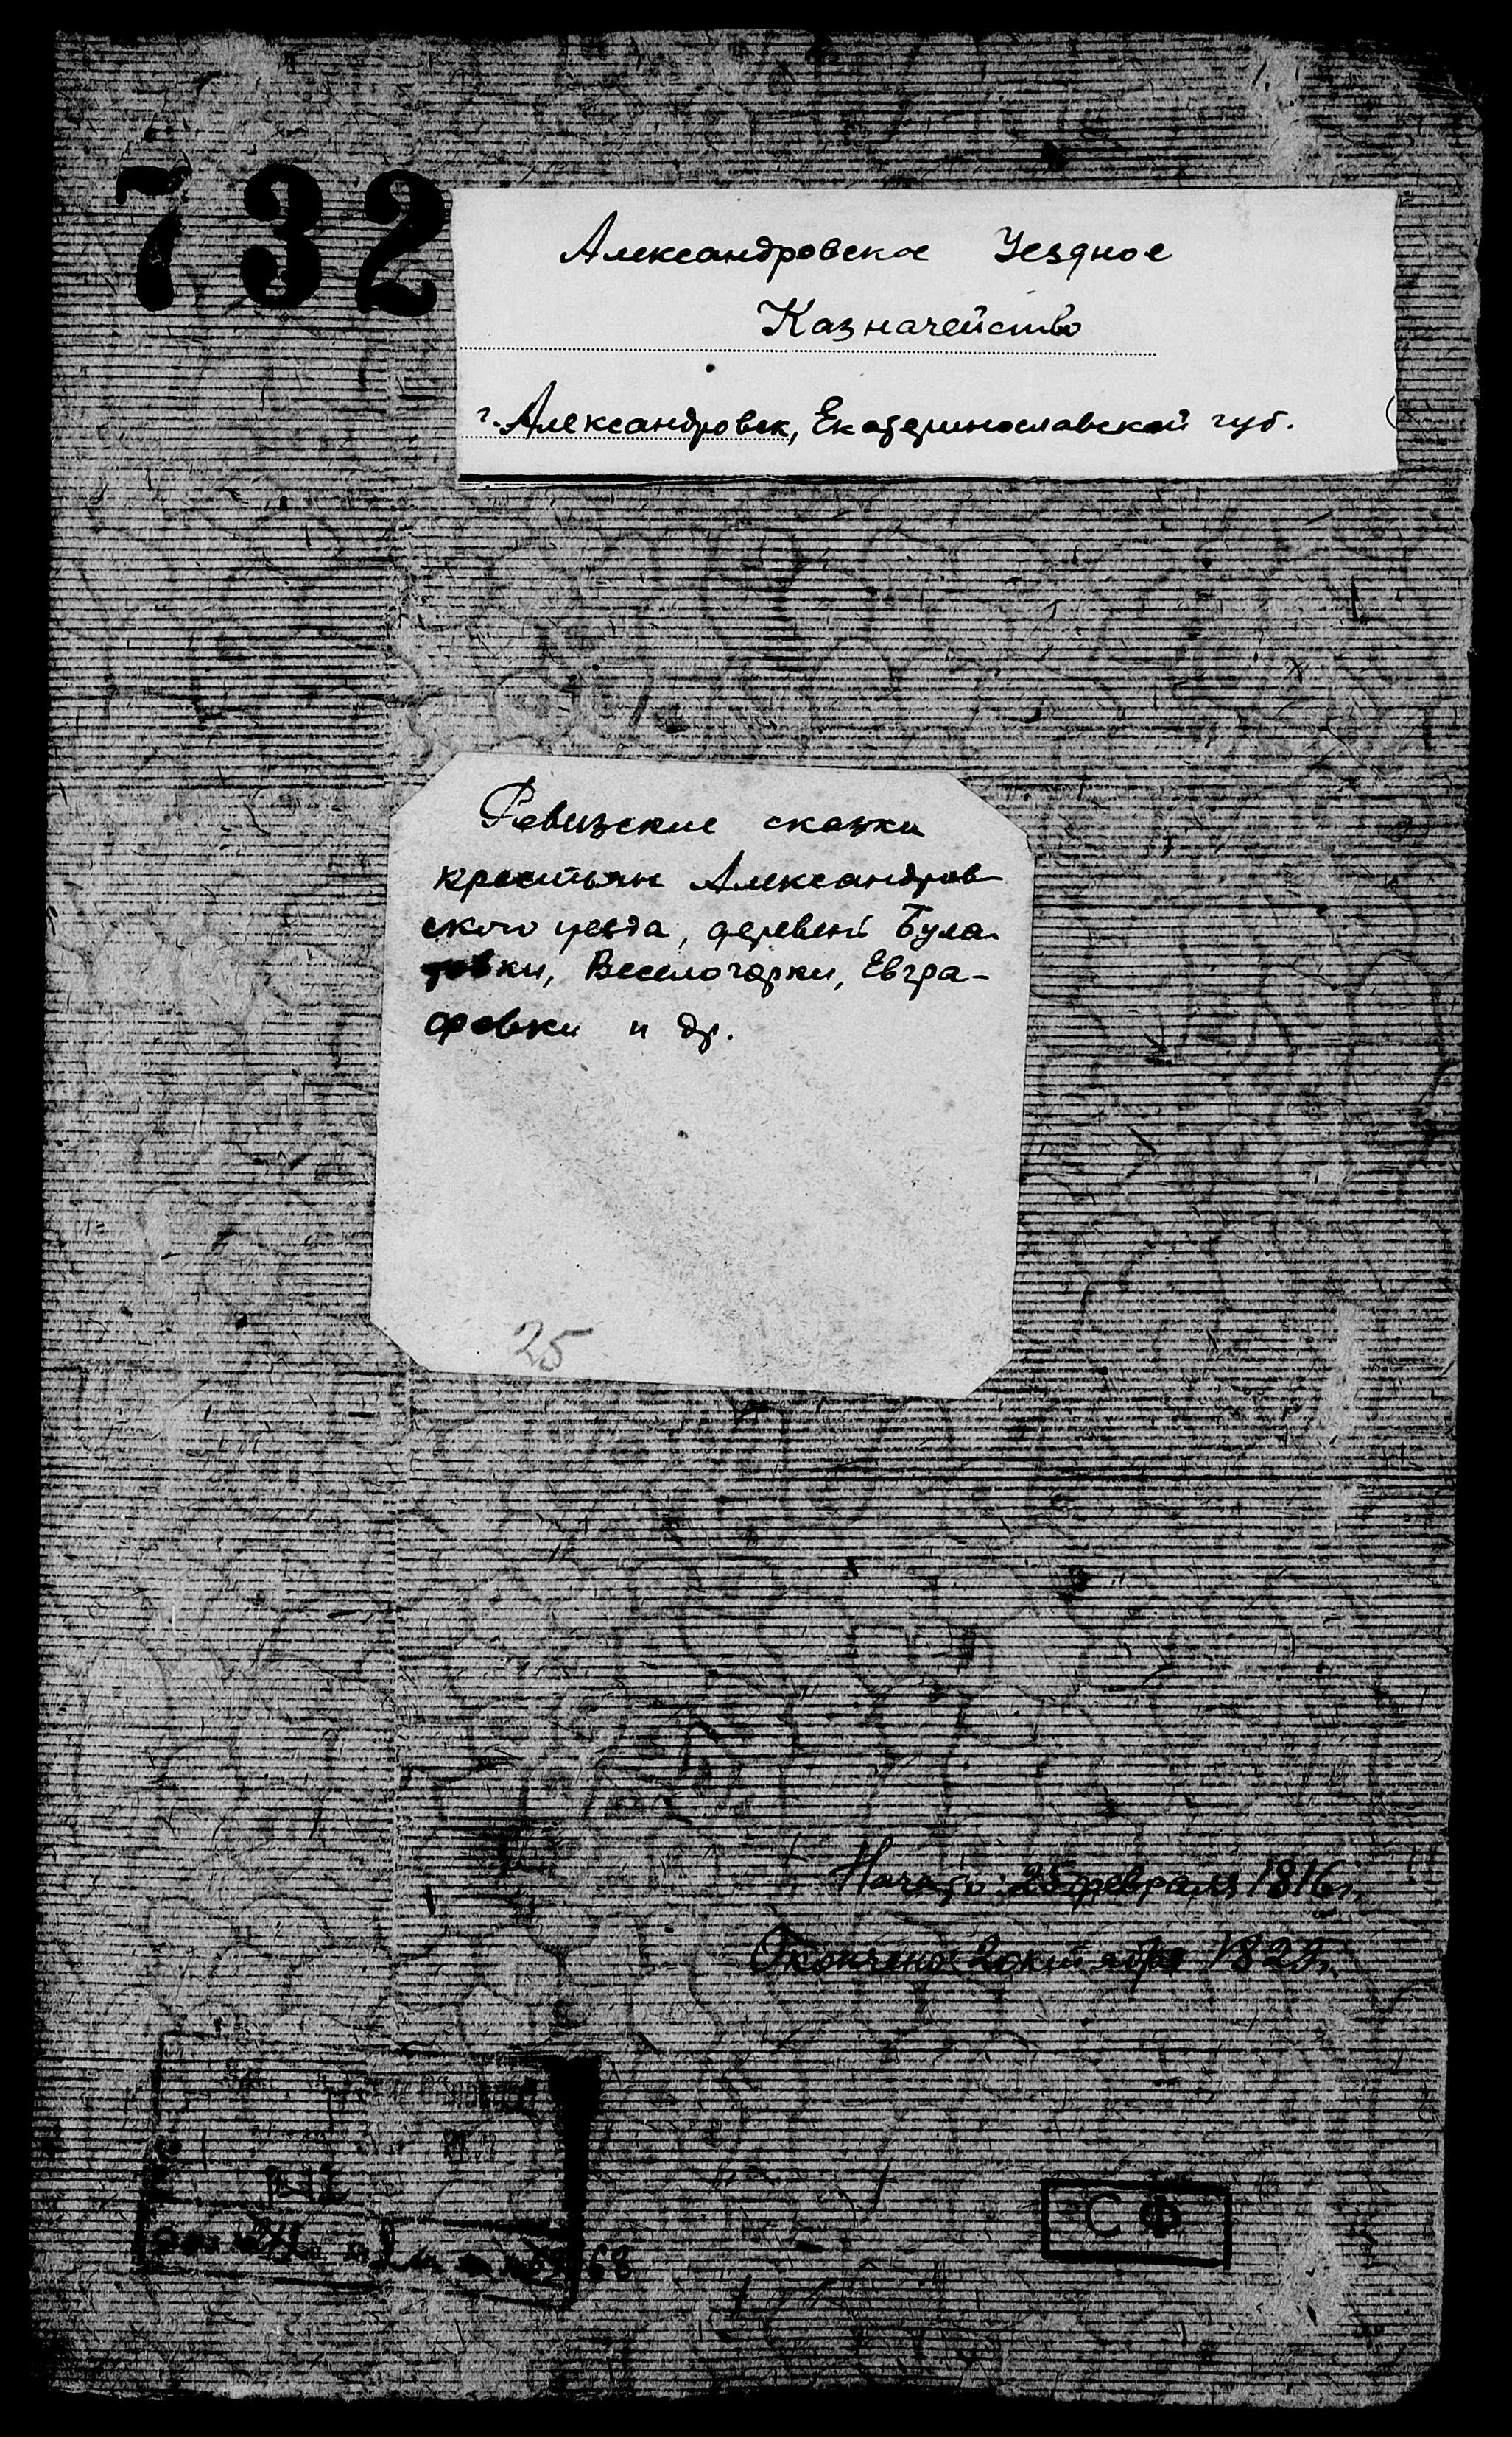 732
Александровское Уездное
Казначейство
г. Александровск, Екатеринославской губ.
Ревизские сказки
крестьян Александров-
ского уезда, деревень Була-
товки, Веселогорки, Евгра-
фовки и др.
25
Начато: 25 февраля 1816 г.
Окончено: 2 октября 1822 г.
СФ